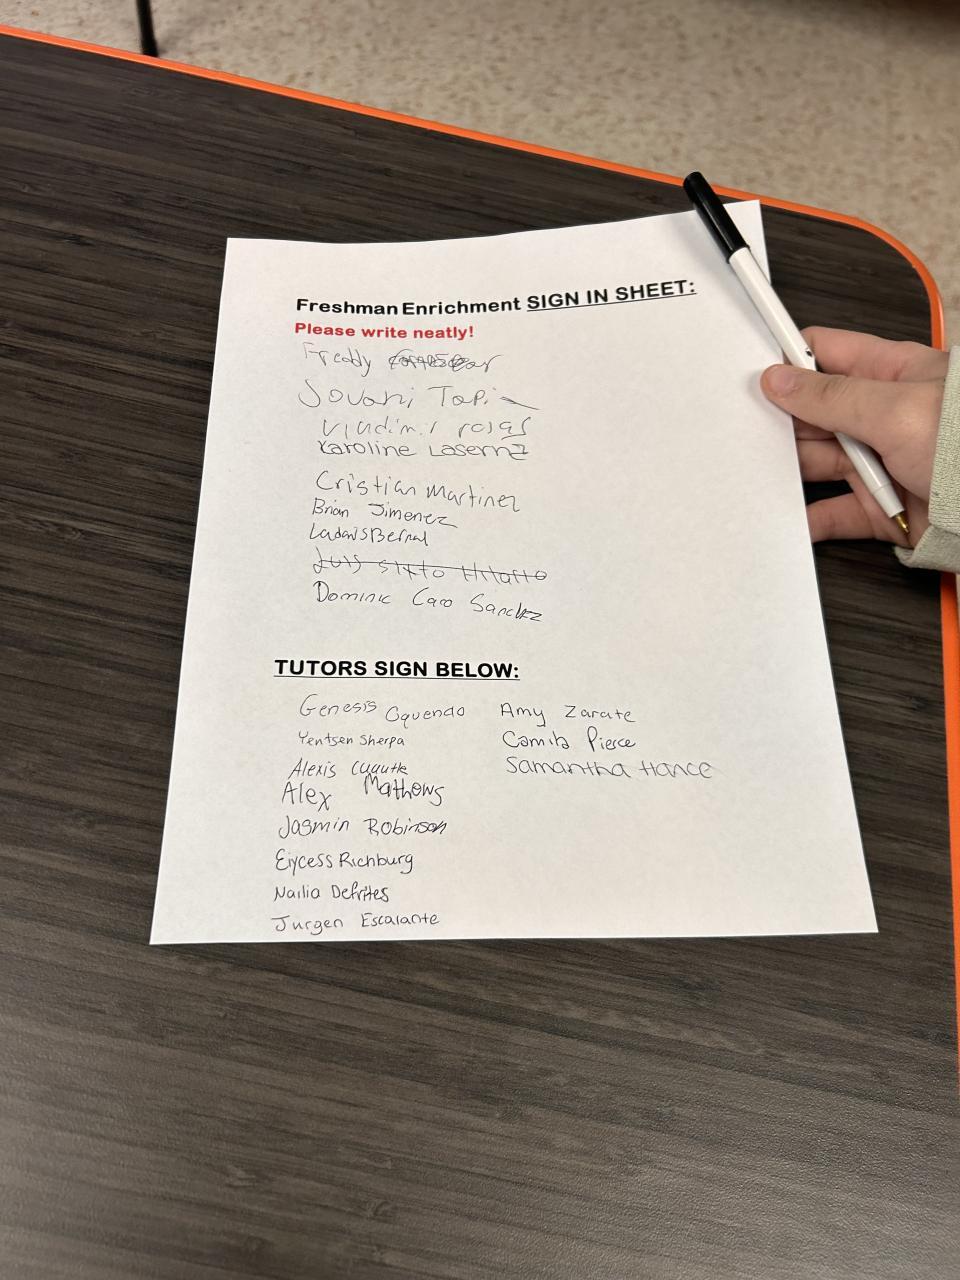 Freshman Enrichment SIGN IN SHEET:
Please write neatly!
Freddy
Jovani Tapia
Vladimir rojas
Karoline Laserna
Cristian Martinez
Brian Jimenez
Bernal
Luis sixto Hilario
Dominic Caro Sanchez
TUTORS SIGN BELOW:
Genesis Oquendo
Yentsen Sherpa
Alexis Cuautle
Alex Mathews
Jasmin Robinson
Eiycess Richburg
Nailia Defrites
Jurgen Escalante
Amy Zarate
Camila Pierce
Samantha Hance